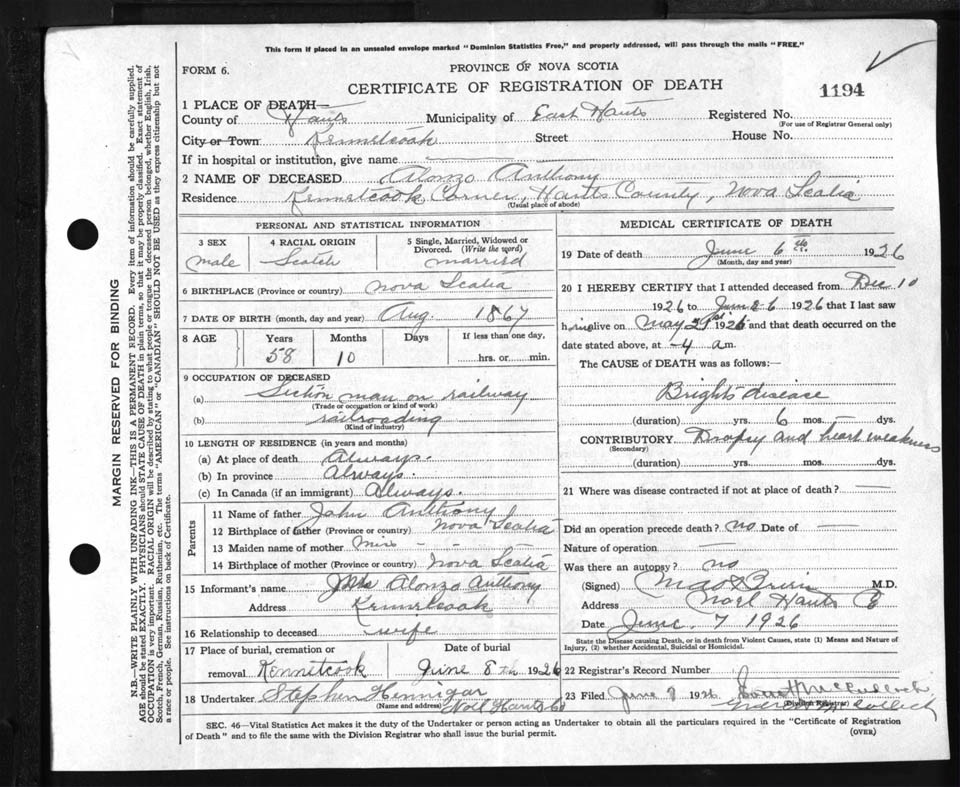 This form if placed in an unsealed envelope marked "Dominion Statistics Free," and properly addressed, will pass through the mails "FREE."
FORM 6.
PROVINCE OF NOVA SCOTIA
CERTIFICATE OF REGISTRATION OF DEATH
1194
1 PLACE OF DEATH—
County of Hants Municipality of East Hants Registered No.
(For use of Registrar General only)
City or Town Kennetcook Street House No.
If in hospital or institution, give name
2 NAME OF DECEASED Alonzo Anthony
Residence Kennetcook Corner, Hants County, Nova Scotia
(Usual place of abode)
PERSONAL AND STATISTICAL INFORMATION
3 SEX 4 RACIAL ORIGIN 5 Single, Married, Widowed or Divorced. (Write the word)
male Scotch married
6 BIRTHPLACE (Province or country) Nova Scotia
7 DATE OF BIRTH (month, day and year) Aug. 1867
8 AGE Years Months Days If less than one day,
58 10 hrs. or min.
9 OCCUPATION OF DECEASED
(a) Section man on railway
(Trade or occupation or kind of work)
(b) railroading
(Kind of industry)
10 LENGTH OF RESIDENCE (in years and months)
(a) At place of death Always.
(b) In province Always.
(c) In Canada (if an immigrant) Always.
Parents
11 Name of father John Anthony
12 Birthplace of father (Province or country) Nova Scotia
13 Maiden name of mother Miss - -
14 Birthplace of mother (Province or country) Nova Scotia
15 Informant's name Mrs Alonzo Anthony
Address Kennetcook
16 Relationship to deceased wife
17 Place of burial, cremation or Date of burial
removal Kennetcook June 8th 1926
18 Undertaker Stephen Hennigar
(Name and address) Noel Hants Co
MEDICAL CERTIFICATE OF DEATH
19 Date of death June 6th 1926
(Month, day and year)
20 I HEREBY CERTIFY that I attended deceased from Dec 10
1926 to June 6 1926 that I last saw
him alive on May 1926 and that death occurred on the
date stated above, at 4 a.m.
The CAUSE of DEATH was as follows:
Brights disease
(duration) yrs. 6 mos. dys.
CONTRIBUTORY Dropsy and heart weakness
(Secondary)
(duration) yrs. mos. dys.
21 Where was disease contracted if not at place of death?
Did an operation precede death? no Date of
Nature of operation
Was there an autopsy? no
(Signed) M.D.
Address Noel Hants Co
Date June 7 1926
State the Disease causing Death, or in death from Violent Causes, state (1) Means and Nature of Injury, (2) whether Accidental, Suicidal or Homicidal.
22 Registrar's Record Number
23 Filed June 1926 McCulloch
(Division Registrar)
SEC. 46—Vital Statistics Act makes it the duty of the Undertaker or person acting as Undertaker to obtain all the particulars required in the "Certificate of Registration
of Death" and to file the same with the Division Registrar who shall issue the burial permit.
(OVER)
MARGIN RESERVED FOR BINDING
N.B.—WRITE PLAINLY WITH UNFADING INK—THIS IS A PERMANENT RECORD. Every item of information should be carefully supplied.
AGE should be stated EXACTLY. PHYSICIANS should STATE CAUSE OF DEATH in plain terms, so that it may be properly classified. Exact statement of
OCCUPATION is very important. RACIAL ORIGIN will be described by stating to what people or tongue the deceased person belonged, whether English, Irish,
Scotch, French, German, Russian, Ruthenian, etc. The terms "AMERICAN" or "CANADIAN" SHOULD NOT BE USED as they express citizenship but not
a race or people. See instructions on back of Certificate.